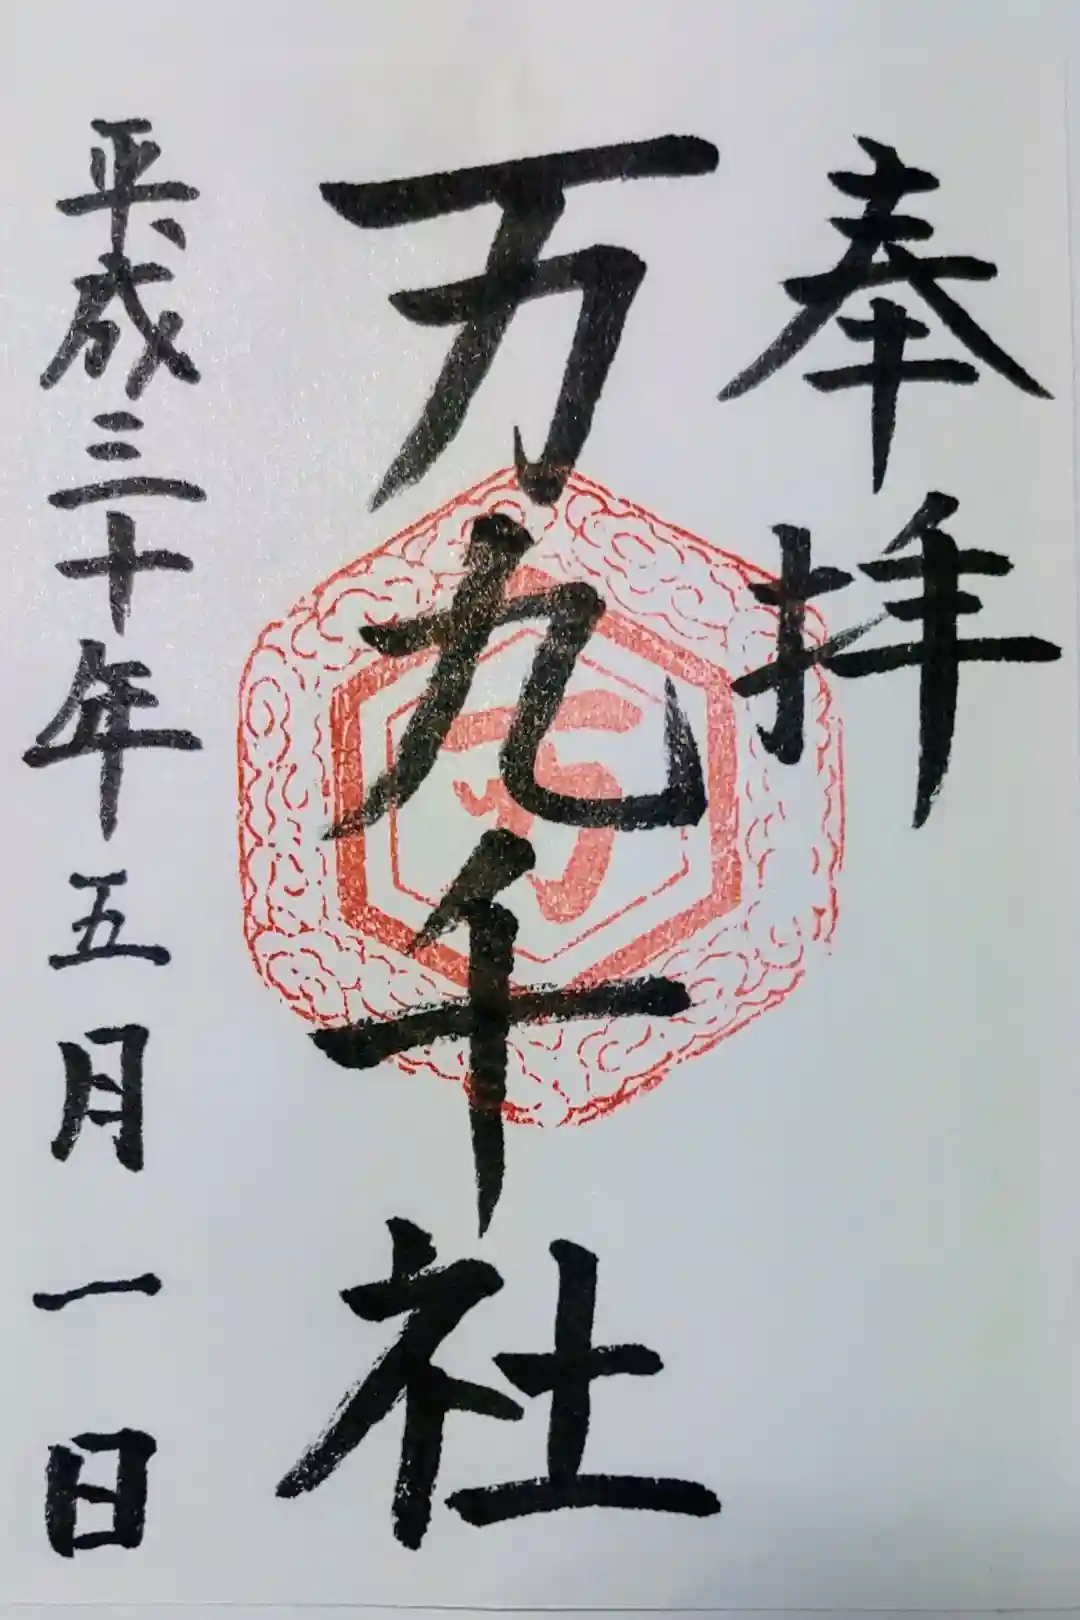 奉拝
万九千社
万
平成三十年五月一日